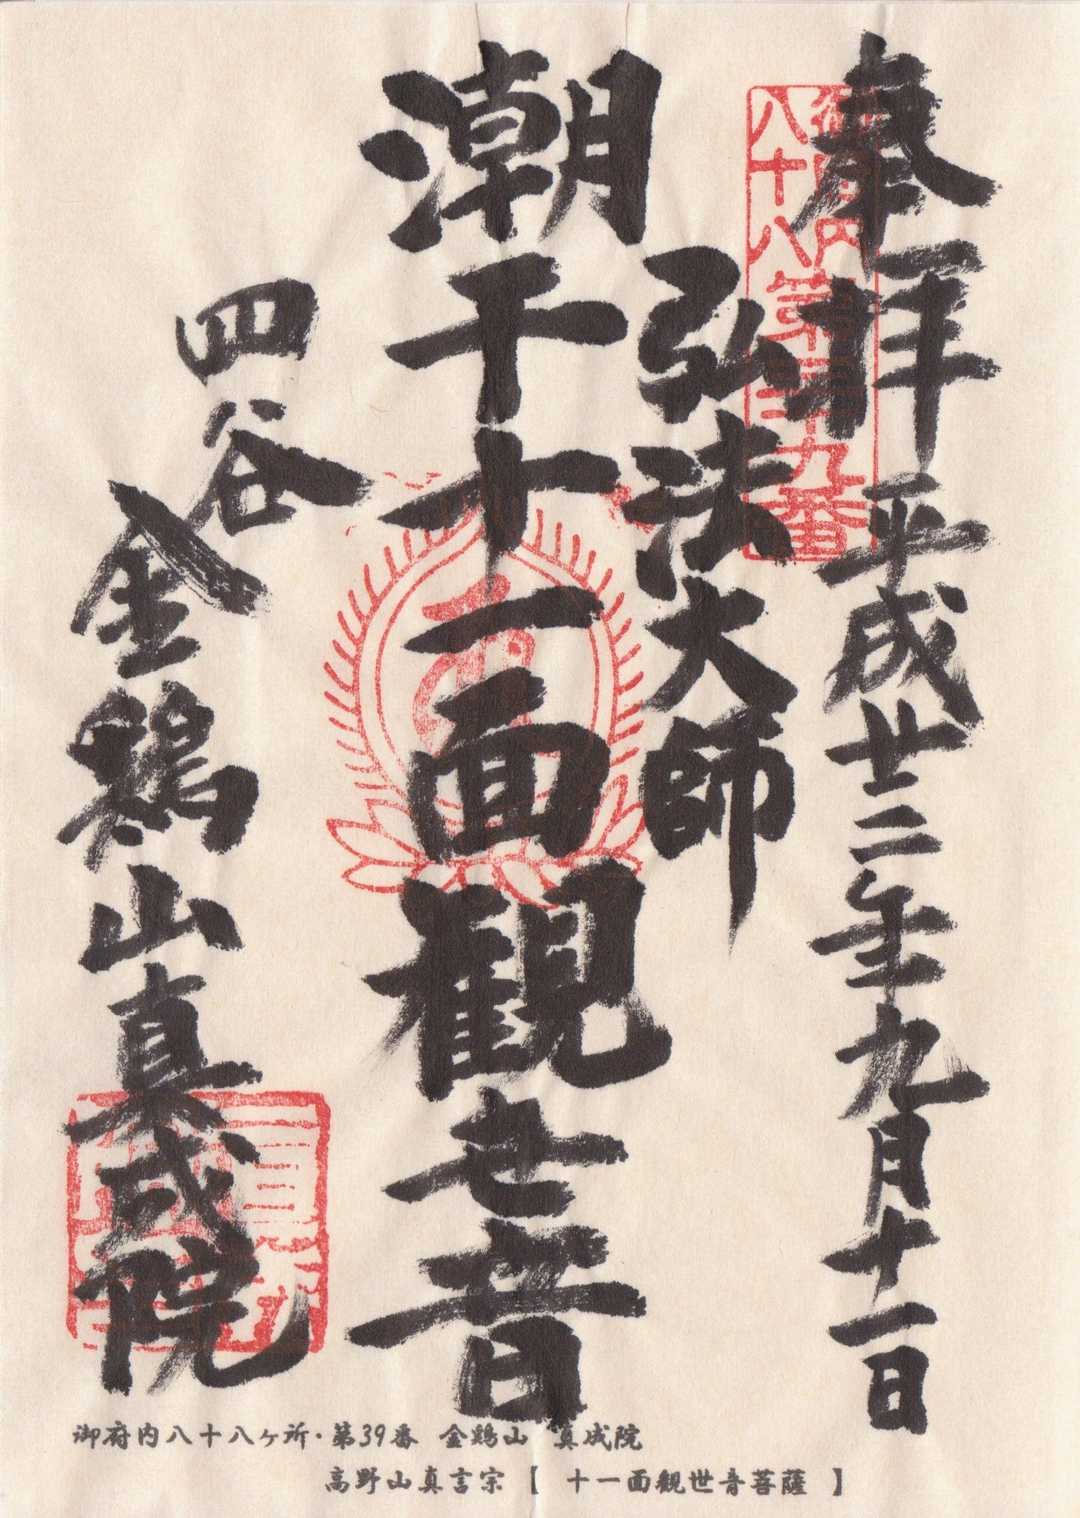 奉拝
平成廿二年九月十一日
御府内
八十八
第三十九番
弘法大師
潮干十一面観世音
四谷
金鶏山真成院
御府内八十八ヶ所・第39番 金鶏山 真成院
高野山真言宗【 十一面観世音菩薩 】